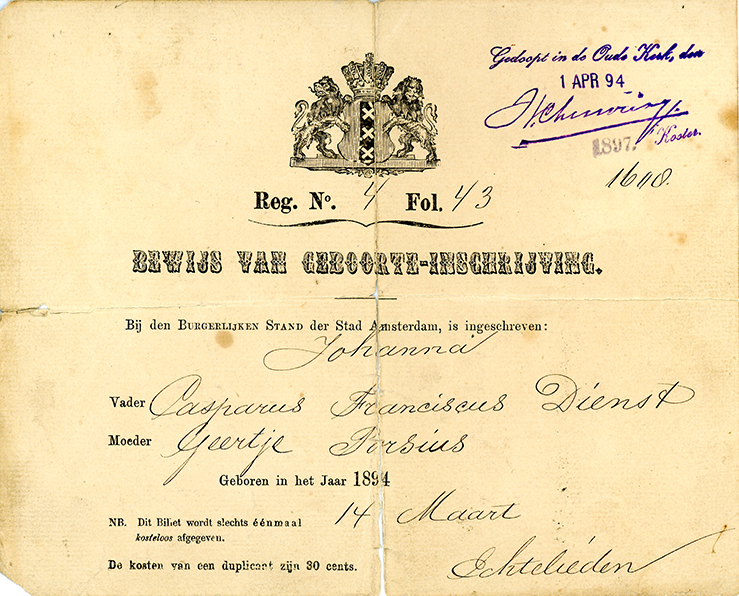 Gedoopt in de Oude Kerk, den
1 APR 94
Koster.
1897.
1608.
Reg. No. 4 Fol. 43
BEWIJS VAN GEBOORTE-INSCHRIJVING.
Bij den BURGERLIJKEN STAND der Stad Amsterdam, is ingeschreven:
Johanna
Vader Casparus Franciscus Dienst
Moeder Geertje Porsius
Geboren in het Jaar 1894
14 Maart
NB. Dit Billet wordt slechts éénmaal
kosteloos afgegeven.
Echtelieden
De kosten van een duplicaat zijn 30 cents.